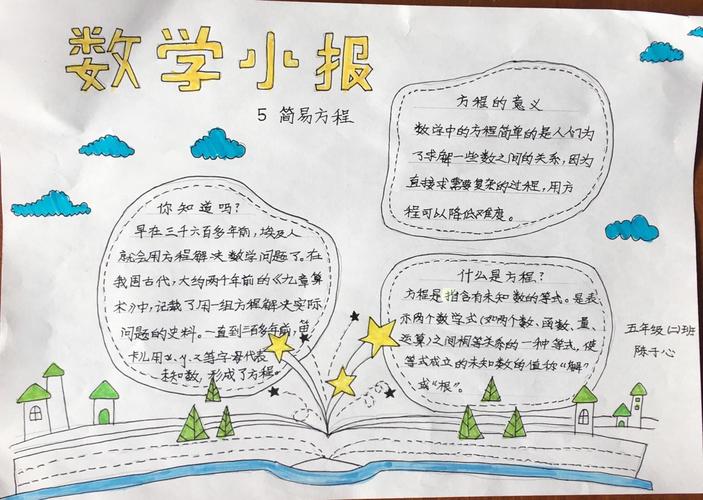 数学小报
5 简易方程
方程的意义
数学中的方程简单的是人们为
了求解一些数之间的关系,因为
直接求需要复杂的过程,用方
程可以降低难度。
你知道吗?
早在三千六百多年前,埃及人
就会用方程解决数学问题了。在
我国古代,大约两千年前的《九章算
术》中,记载了用一组方程解决实际
问题的史料。一直到三百多年前,笛
卡儿用x、y、z等字母代表
未知数,形成了方程。
什么是方程?
方程是指含有未知数的等式。是表
示两个数学式(如两个数、函数、量、
运算)之间相等关系的一种等式,使
等式成立的未知数的值称“解”
或“根”。
五年级(二)班
陈子心